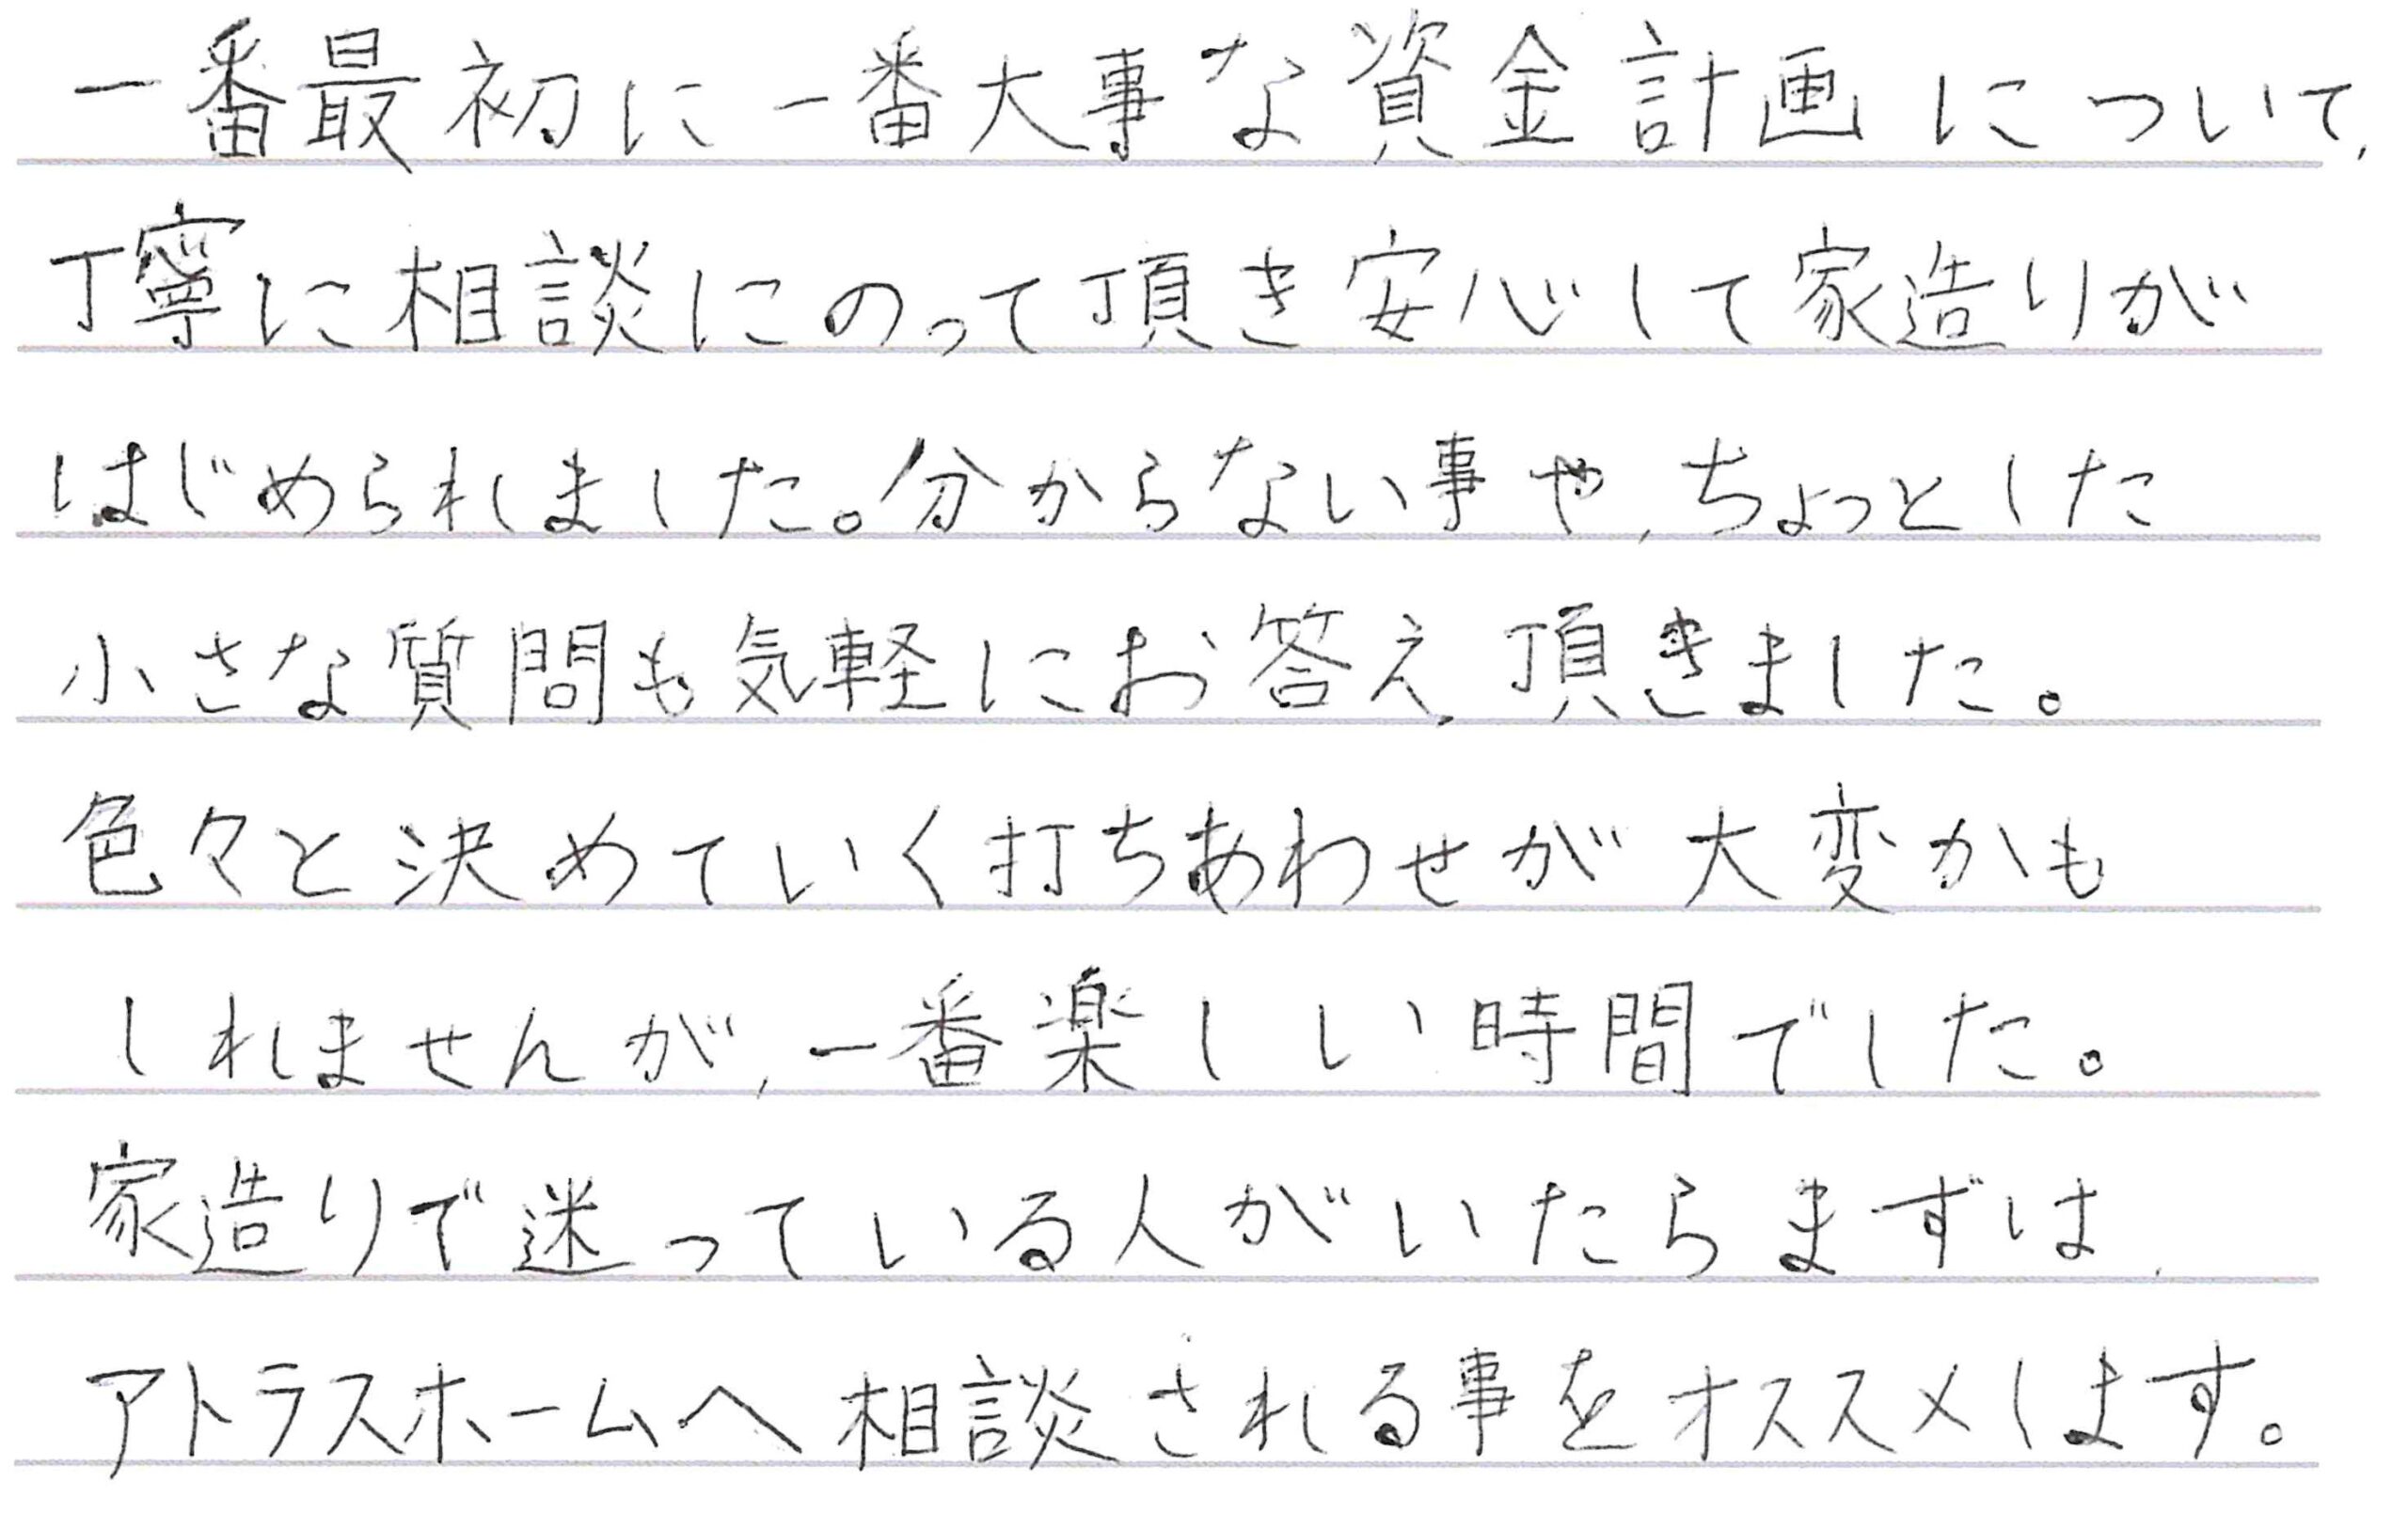 一番最初に一番大事な資金計画について、
丁寧に相談にのって頂き安心して家造りが
はじめられました。分からない事や、ちょっとした
小さな質問も気軽にお答え頂きました。
色々と決めていく打ちあわせが大変かも
しれませんが、一番楽しい時間でした。
家造りで迷っている人がいたらまずは、
アトラスホームへ相談される事をオススメします。